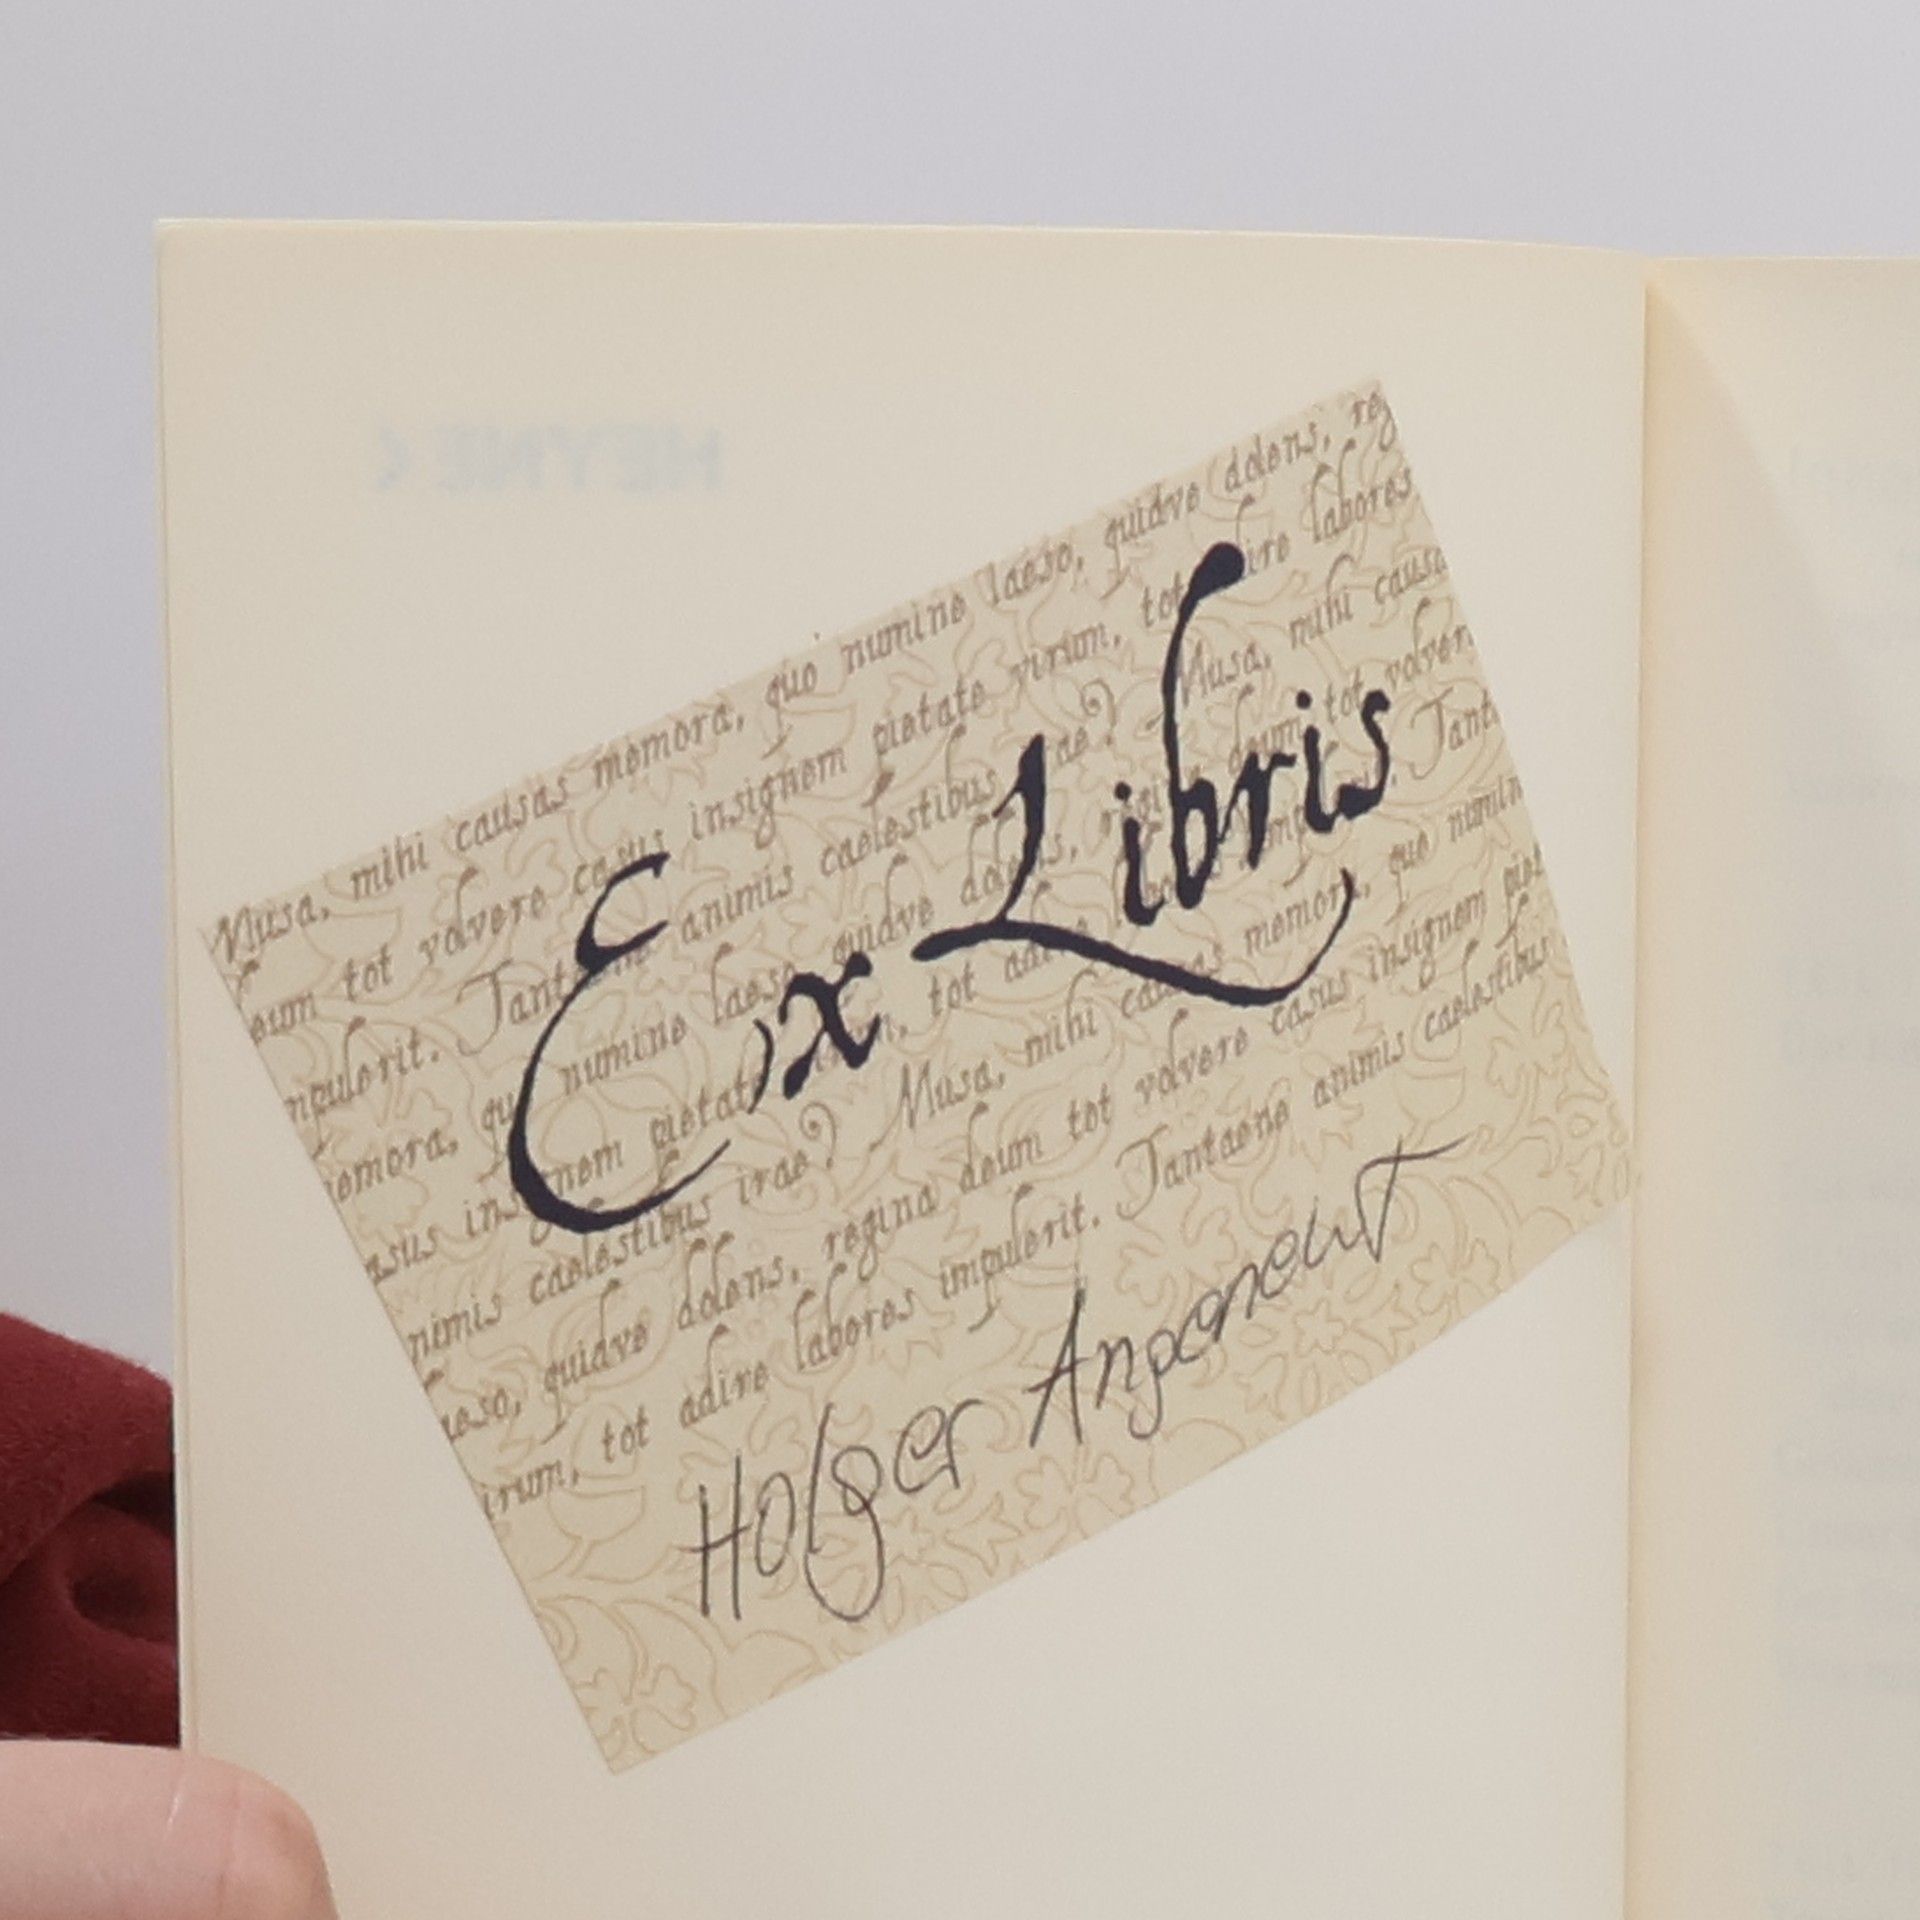 HEYNE <
Musa, mihi causas memora, quo numine laeso, quidve dolens, reg
eum tot volvere casus insignem pietate virum, tot adire labores
mpulerit. Tantaene animis caelestibus irae? Musa, mihi causa
emora, quo numine laeso, quidve dolens, regina deum tot volver
asus insignem pietate virum, tot adire labores impulerit. Tant
nimis caelestibus irae? Musa, mihi causas memora, quo numin
aeso, quidve dolens, regina deum tot volvere casus insignem piet
irum, tot adire labores impulerit. Tantaene animis caelestibus
Ex Libris
Holger